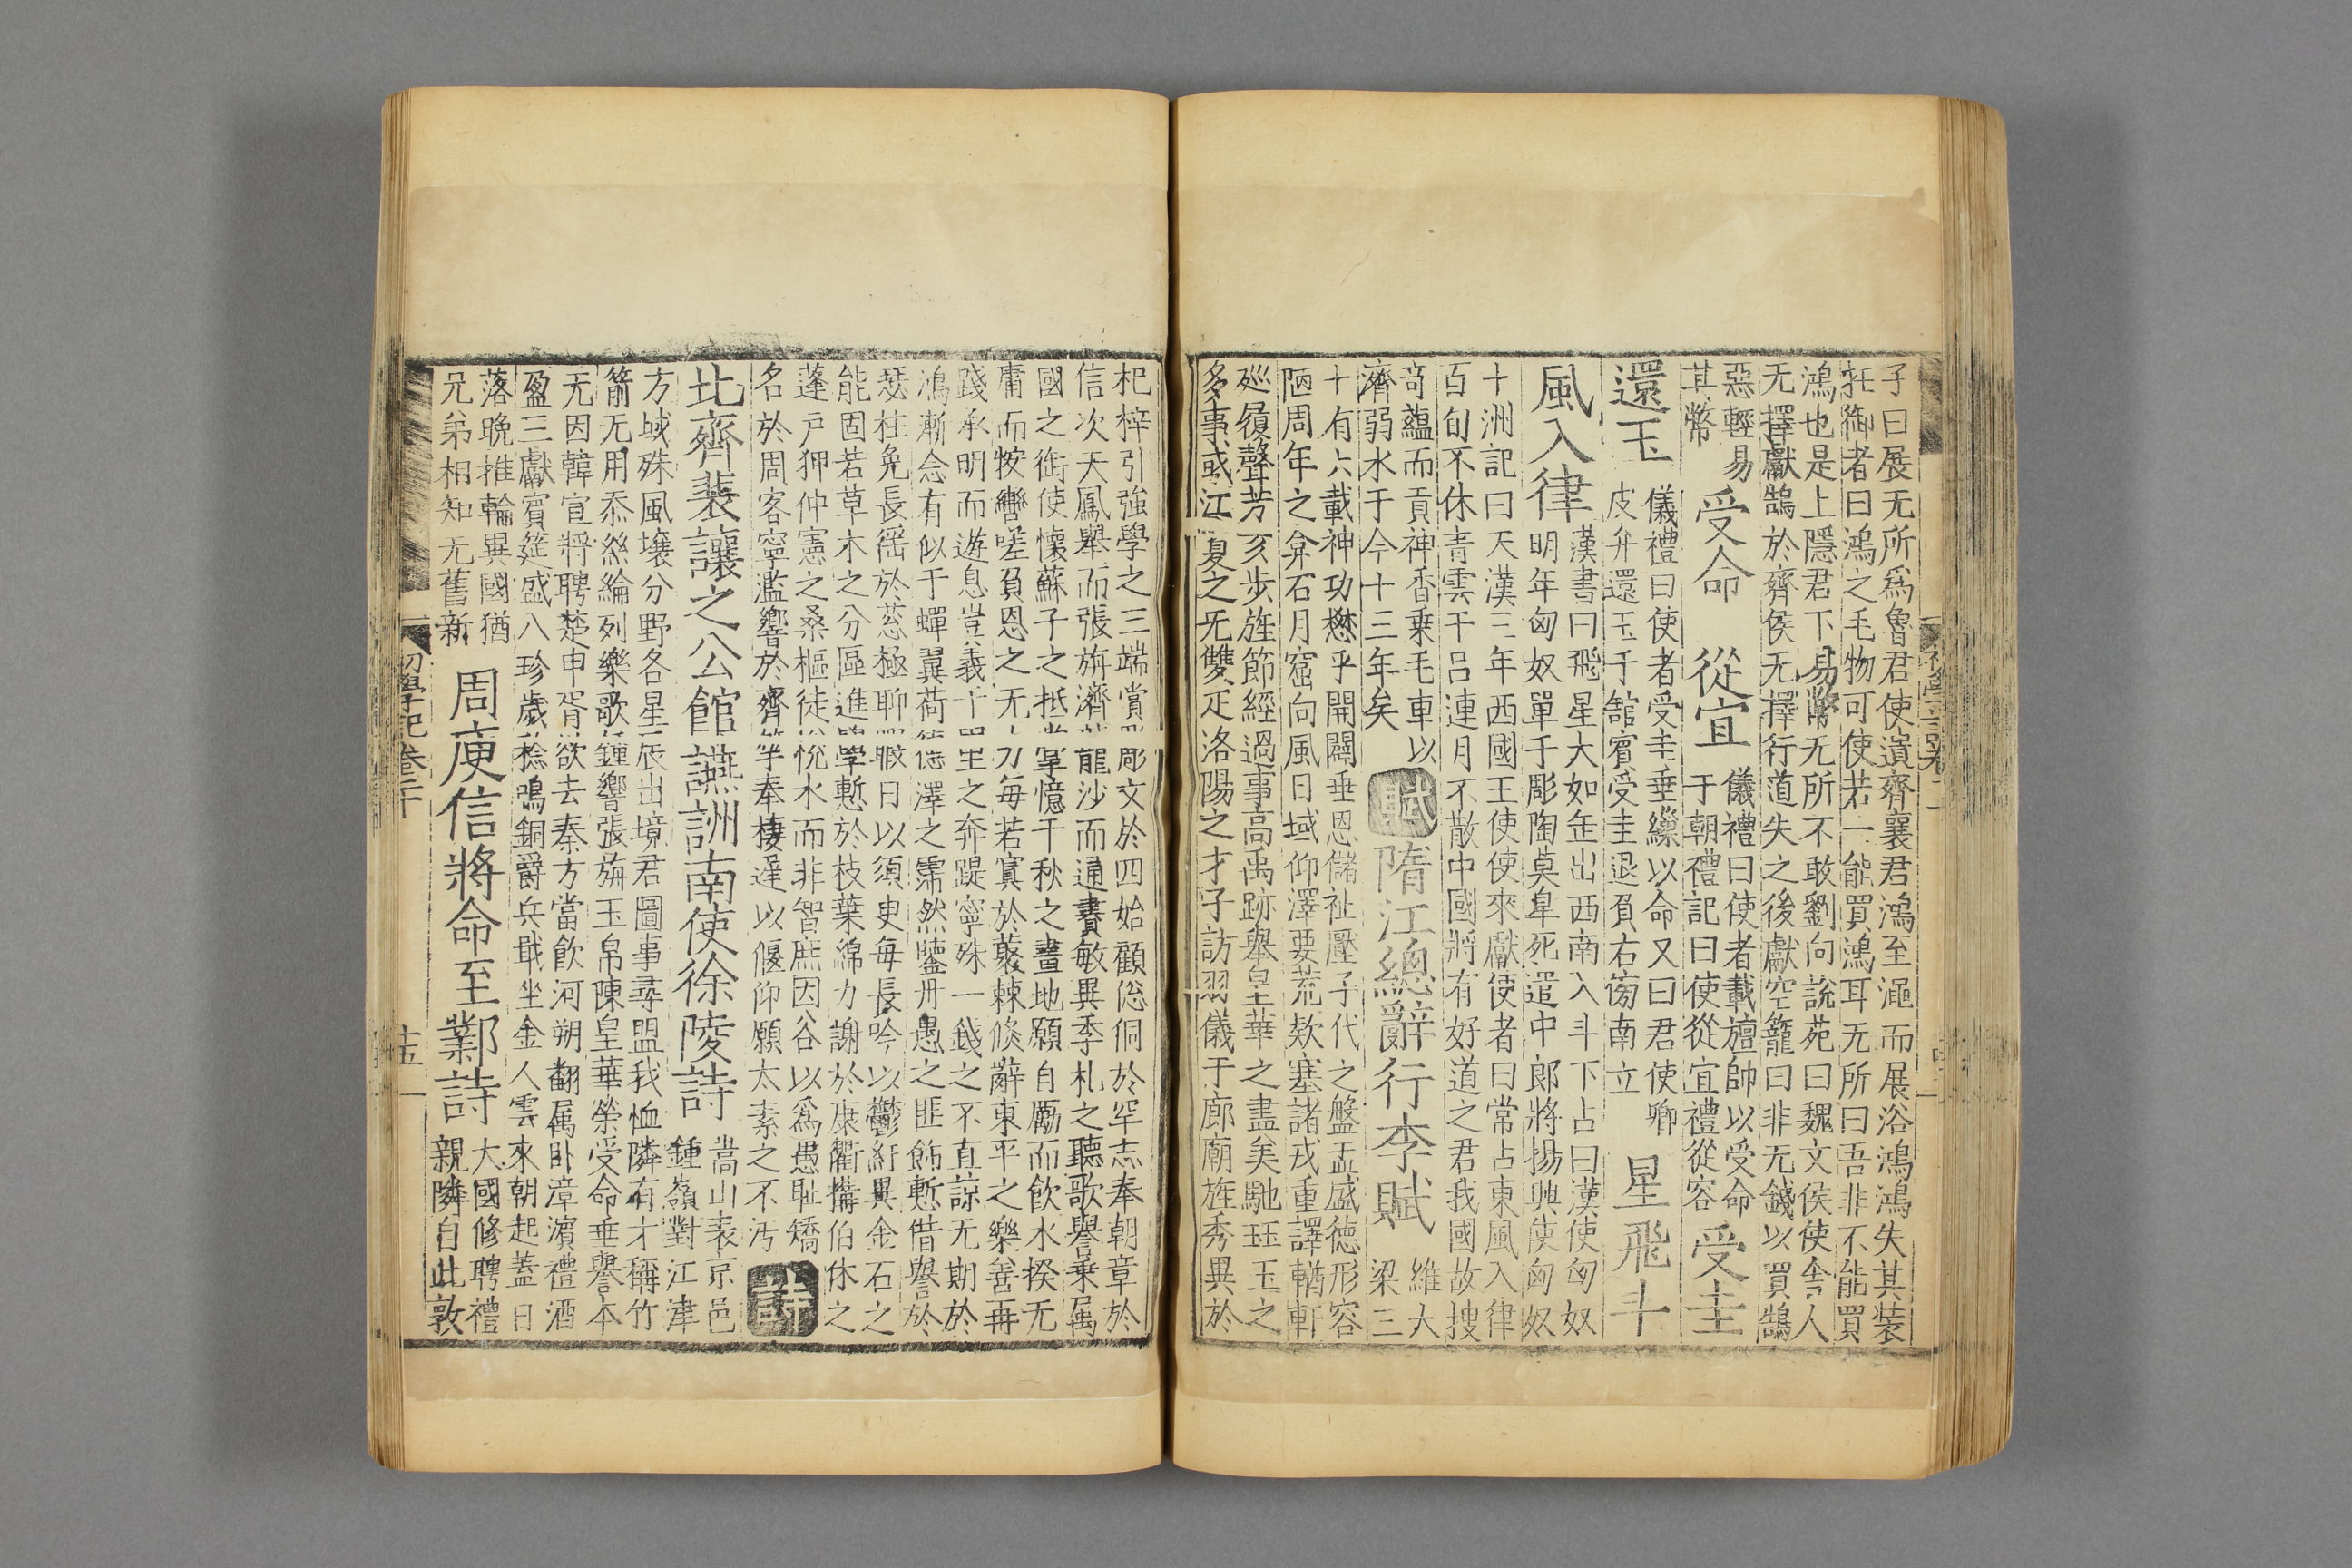 子曰展无所爲魯君使遺齊襄君鴻至澠而展浴鴻鴻失其裝
在御者曰鴻之毛物可使若一能買鴻耳无所曰吾非不能買
鴻也是上隱君下易幣无所不敢劉向說苑曰魏文侯使舍人
无擇獻鵠於齊侯无擇行道失之後獻空籠曰非无錢以買鵠
惡輕易
其幣
受命
儀禮曰使者載旜帥以受命
于朝禮記曰使從宜禮從容
從宜
受圭
還玉
儀禮曰使者受圭垂繅以命又曰君使卿
皮弁還玉于館賓受圭退負右箱南立
星飛斗
風入律
漢書曰飛星大如缶出西南入斗下占曰漢使匈奴
明年匈奴單于彫陶莫皐死遣中郎將揚興使匈奴
十洲記曰天漢三年西國王使使來獻使者曰常占東風入律
百旬不休青雲干呂連月不散中國將有好道之君我國故搜
奇蘊而貢神香乗毛車以
濟弱水于今十三年矣
賦
隋江總辭行李賦
維大
梁三
十有六載神功懋乎開闢垂恩儲祉壓子代之盤盂盛德形容
陋周年之弇石月窟向風日域仰澤要荒欵塞諸戎重譯輶軒
廵履聲芳亥步旌節經過事高禹跡舉皇華之盡美馳珏玉之
多事或江夏之无雙疋洛陽之才子訪羽儀于廊廟旌秀異於
杞梓引強學之三端賞彫文於四始顧倥侗於罕志奉朝章於
信次天鳳舉而張旃濟龍沙而通賮敏異季札之聽歌譽乗属
國之銜使懷蘇子之抵掌憶干秋之畫地願自勵而飲水揆无
庸而按轡嗟負恩之无力每若窴於藂棘倏辭東平之樂善再
踐承明而遊息豈義十里之奔踶寧殊一錢之不直諒无期於
鴻漸念有似于蟬翼荷德澤之霈然鑒丹愚之匪飾慙借譽於
瑟柱免長徭於慈極聊暇日以須臾每長吟以鬱紆異金石之
能固若草木之分區進學慙於枝葉綿力謝於康衢搆伯休之
蓬戸狎仲憲之桑樞徒悅水而非智庶因谷以爲愚耻矯
名於周客寧濫響於齊竽奉棲遑以偃仰願太素之不汚
詩
北齊裴讓之公館讌詶南使徐陵詩
嵩山表京邑
鍾嶺對江津
方域殊風壤分野各星辰出境君圖事尋盟我恤隣有才稱竹
箭无用忝絲綸列樂歌鍾響張旃玉帛陳皇華榮受命垂譽本
无因韓宣將聘楚申胥欲去秦方當飲河朔翻属卧漳濱禮酒
盈三獻賓筵盛八珍歲稔鳴銅爵兵戢坐金人雲來朝起蓋日
落晚推輪異國猶
兄弟相知无舊新
周庾信將命至鄴詩
大國修聘禮
親隣自此敦
初學記卷二十
十五